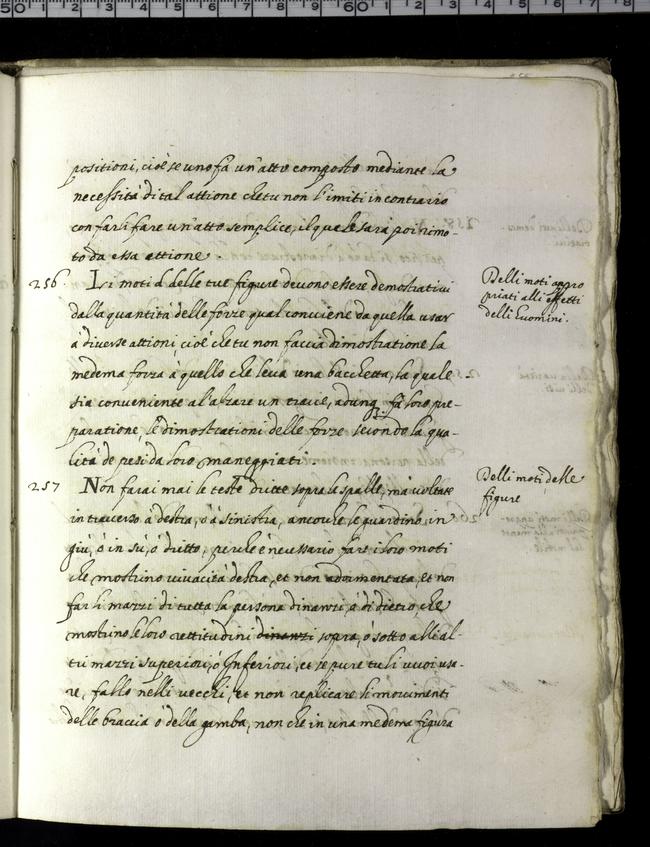 positioni, cioè se uno fà un'atto composto mediante la
necessità di tal attione che tu non l'imiti in contrario
con farli fare un'atto semplice, il quale sarà poi rimo-
to da essa attione.
256. Li moti d delle tue figure devono essere demostrativi
dalla quantità delle forze qual conviene da quella usar
à diverse attioni cioè che tu non faccia dimostratione la
medema forza à quello che leva una bacchetta, la quale
sia conveniente al alzare un trave, adunq. fà loro pre-
paratione, le dimostrationi delle forze secondo la qua-
lità de pesi da loro maneggiati.
Delli moti appro
priati alli effetti
delli huomini.
257 Non farai mai le teste dritte sopra le spalle, mà voltate
in traverso à destra, ò à sinistra, ancorche le guardino in
giù, ò in sù, ò dritto, perche è necessario fare i loro moti
che mostrino vivacità destra, et non adormentata, et non
far li mazzi di tutta la persona dinanzi, ò di dietro, che
mostrino le loro rettitudini dinanzi sopra, ò sotto alli al-
tri mazzi superiori, ò Inferiori, et se pure tu li vuoi usa-
re, fallo nelli vecchi, et non replicare li movimenti
delle braccia ò della gamba, non che in una medema figura
Delli moti delle
figure